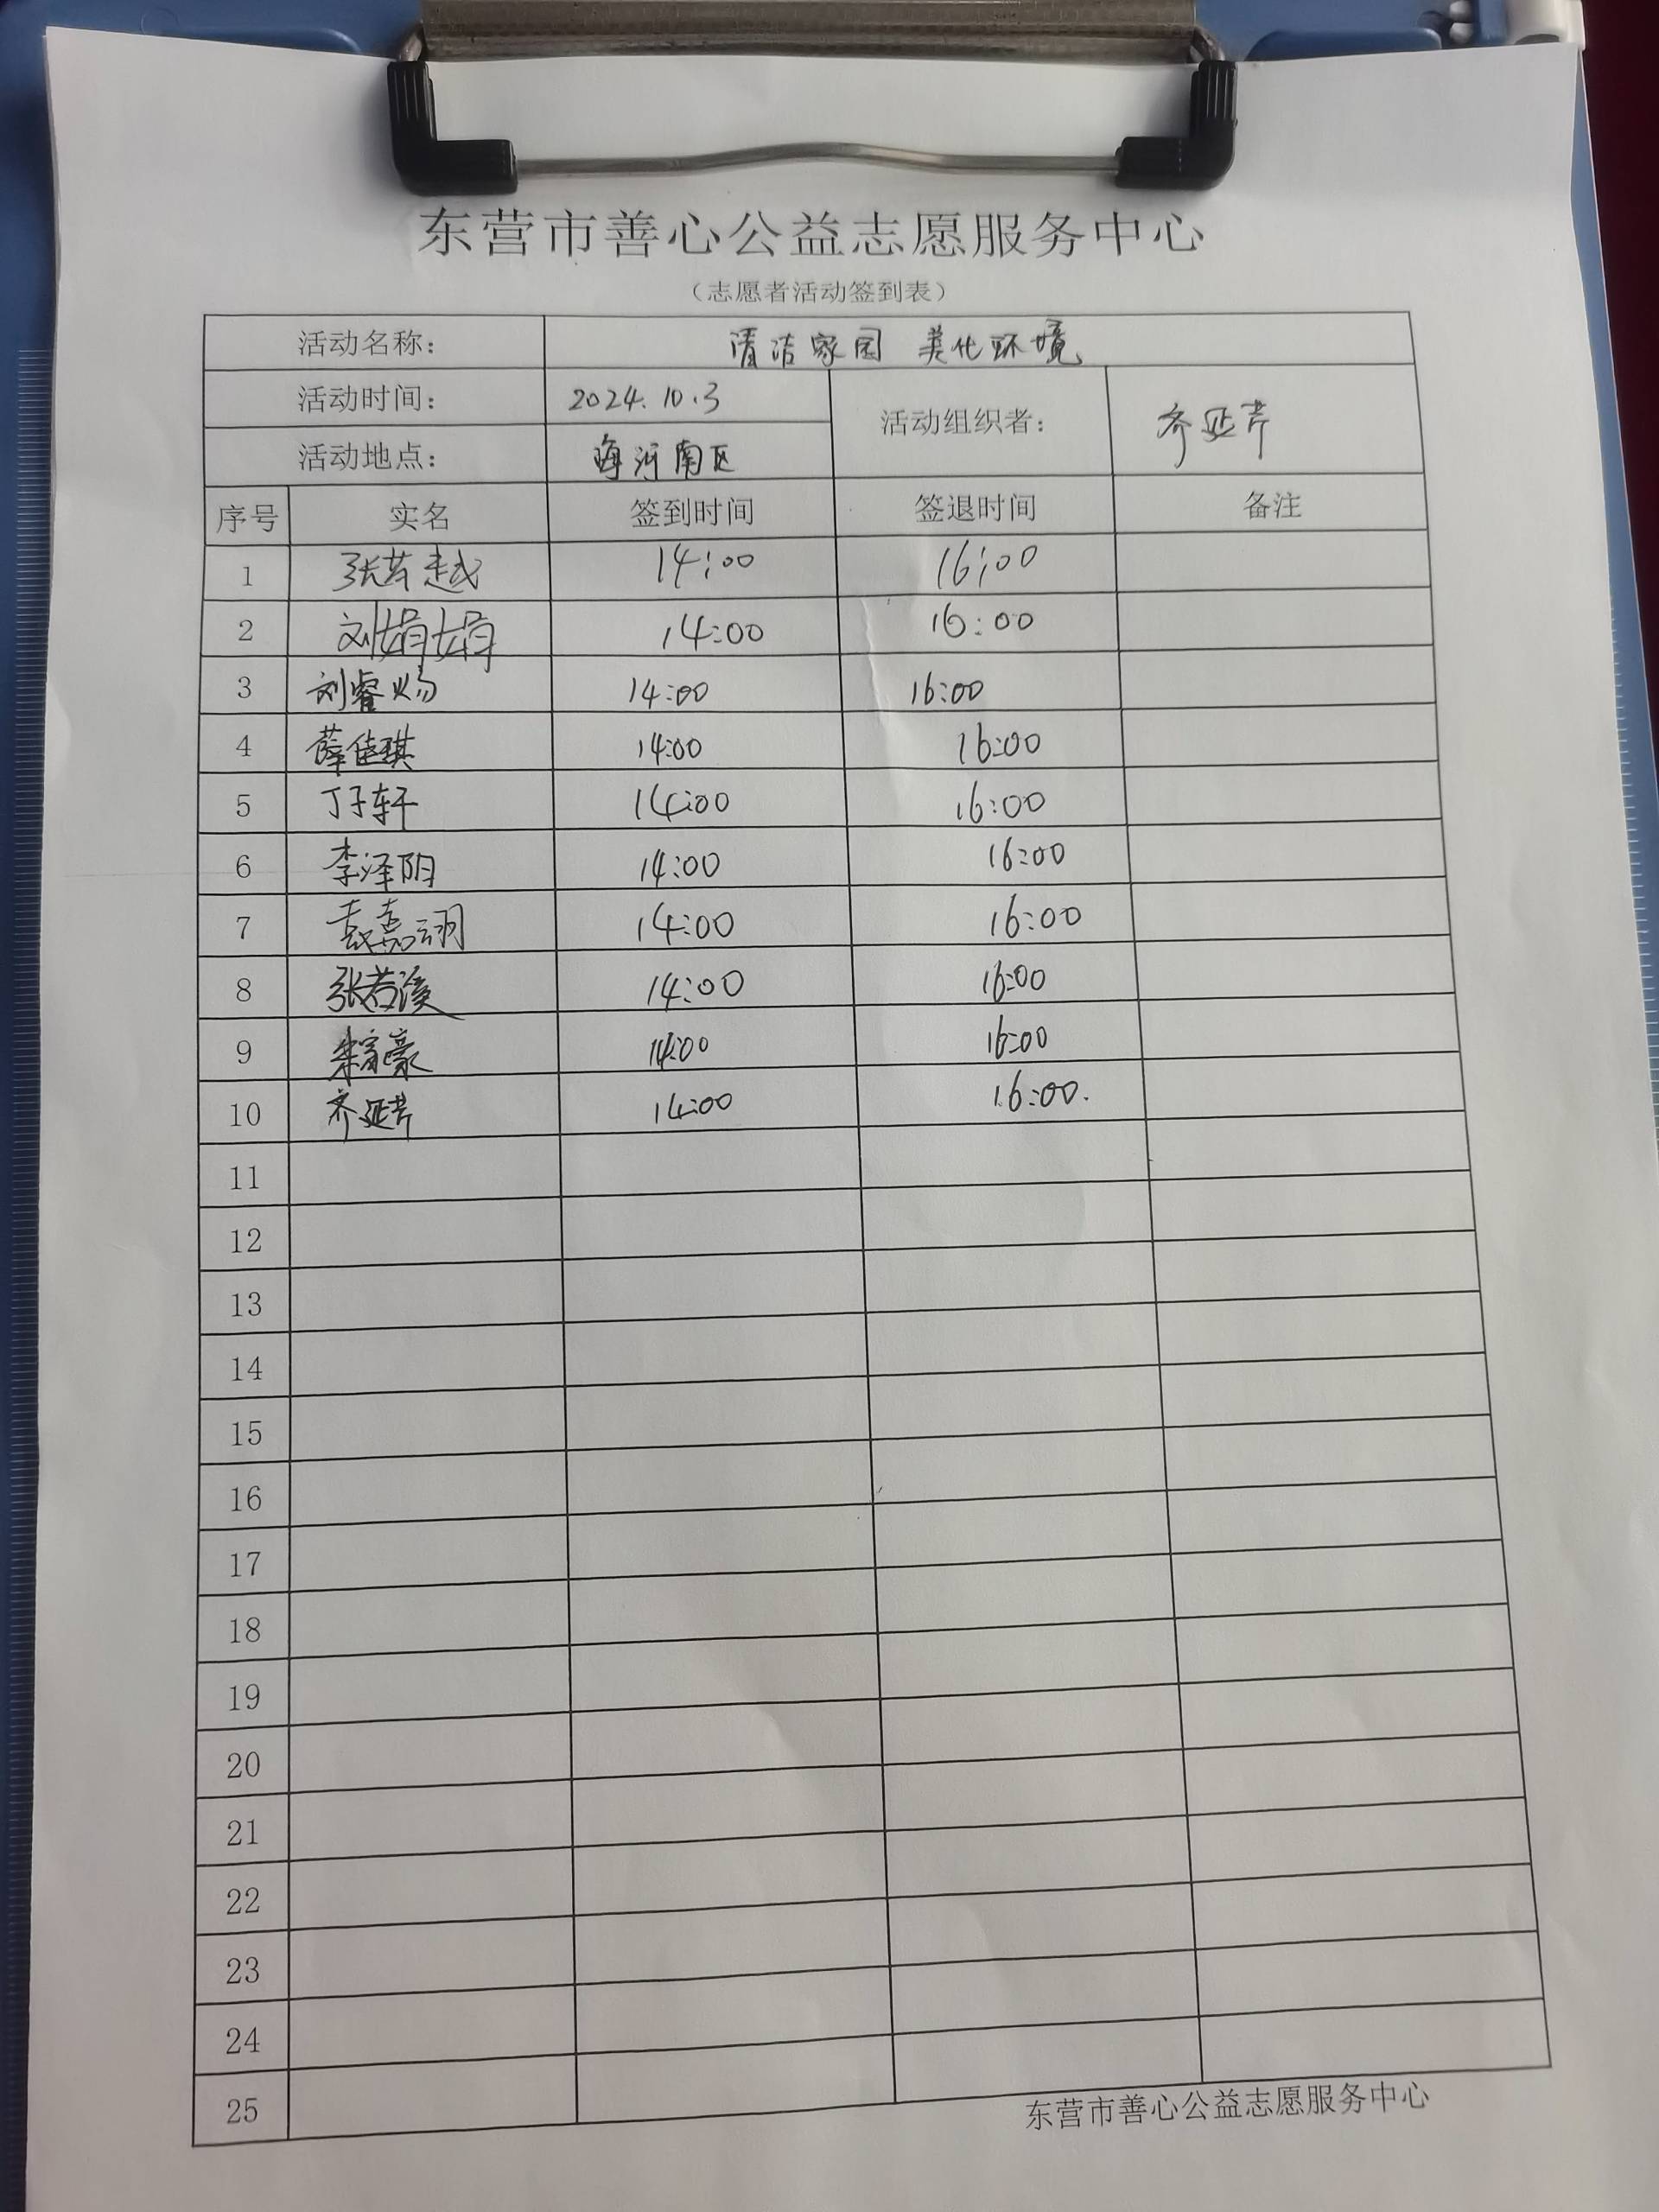 东营市善心公益志愿服务中心
（志愿者活动签到表）
活动名称： 清洁家园 美化环境
活动时间： 2024.10.3 活动组织者： 齐延芹
活动地点： 海河南区
序号 实名 签到时间 签退时间 备注
1 张芸越 14:00 16:00
2 刘娟娟 14:00 16:00
3 刘睿炀 14:00 16:00
4 薛佳琪 14:00 16:00
5 丁子轩 14:00 16:00
6 李泽阴 14:00 16:00
7 袁嘉翊 14:00 16:00
8 张若溪 14:00 16:00
9 豪 14:00 16:00
10 齐延芹 14:00 16:00.
11
12
13
14
15
16
17
18
19
20
21
22
23
24
25
东营市善心公益志愿服务中心